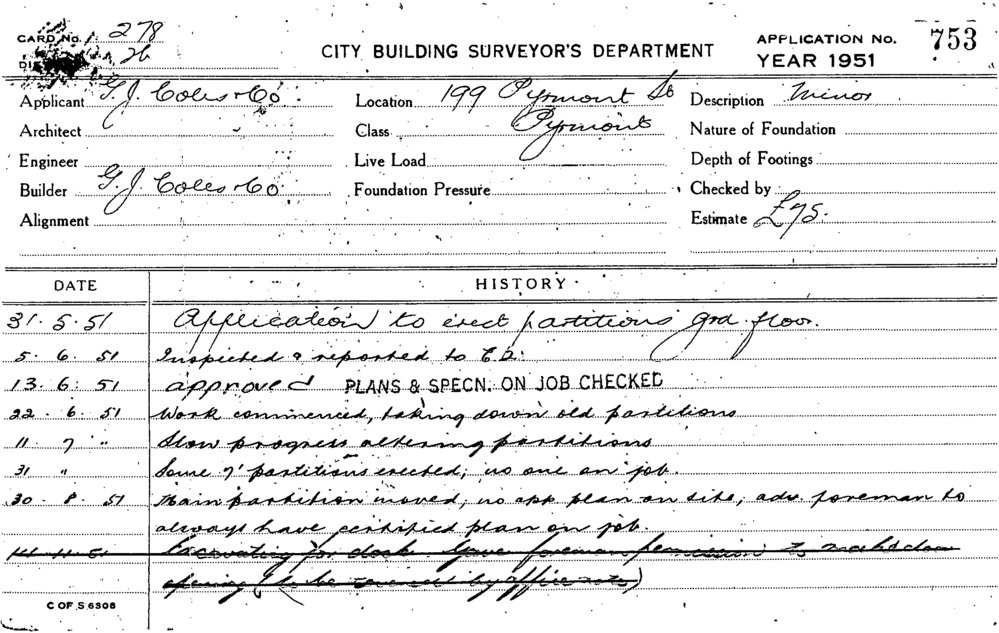 CARD No. 278
26
CITY BUILDING SURVEYOR'S DEPARTMENT
APPLICATION No. 753
YEAR 1951
Applicant G. J. Coles & Co.
Location 199 Pyrmont St
Description Minor
Architect
Class Pyrmont
Nature of Foundation
Engineer
Live Load
Depth of Footings
Builder G. J. Coles & Co.
Foundation Pressure
Checked by
Alignment
Estimate £75.
DATE HISTORY
31.5.51 Application to erect partitions grd. floor.
5.6.51 Inspected & reported to
13.6.51 approved PLANS & SPECN. ON JOB CHECKED
22.6.51 Work commenced, taking down old partitions
11 7 " Slow progress altering partitions
31 " Some 7' partitions erected; no one on job.
30.8.51 Main partition moved; no app plan on site; adv. foreman to
always have certified plan on job.
14.11.51 Excavating for dock. Gave foreman permission to
opening (to be covered by office note)
C OF S 6306